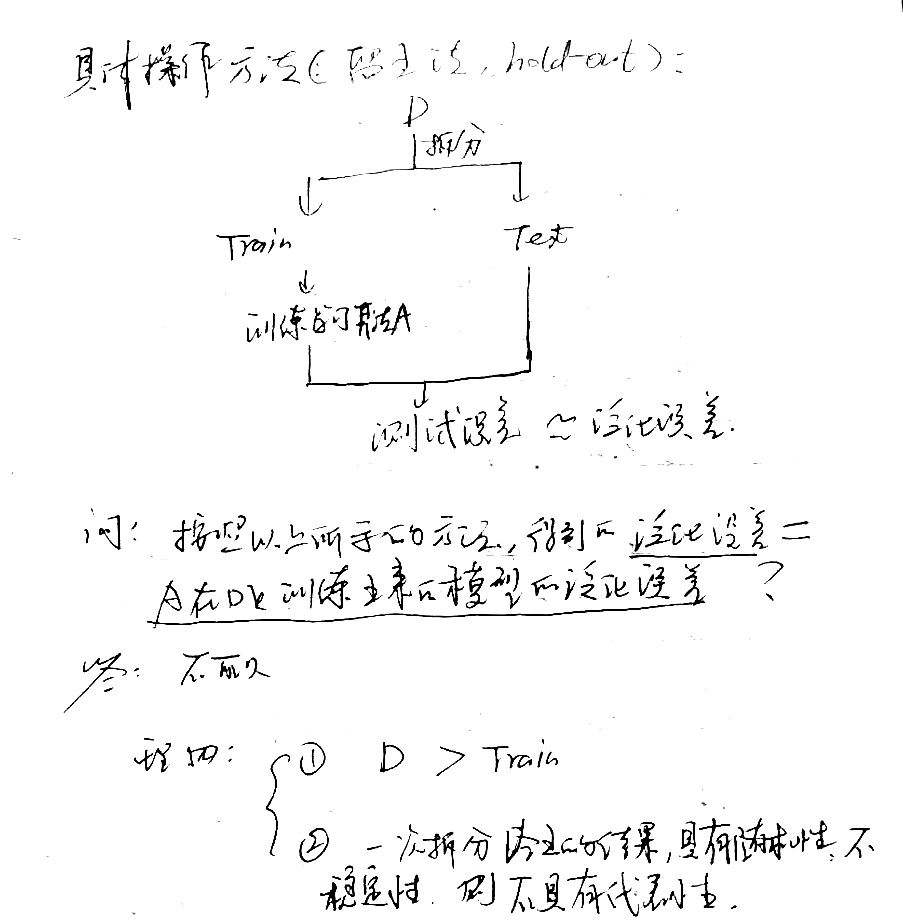 具体操作方法(留出法, hold-out):
D
拆分
Train Test
↓
训练学习算法A
测试误差 ≈ 泛化误差.
问: 按照以上所示的方法, 得到的泛化误差 =
A在D上训练出来的模型的泛化误差 ?
答: 不可以
理由: ① D > Train
② 一次拆分 得出的结果, 具有随机性, 不
稳定性. 则不具有代表性.